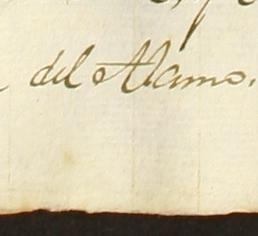 del Alamo.